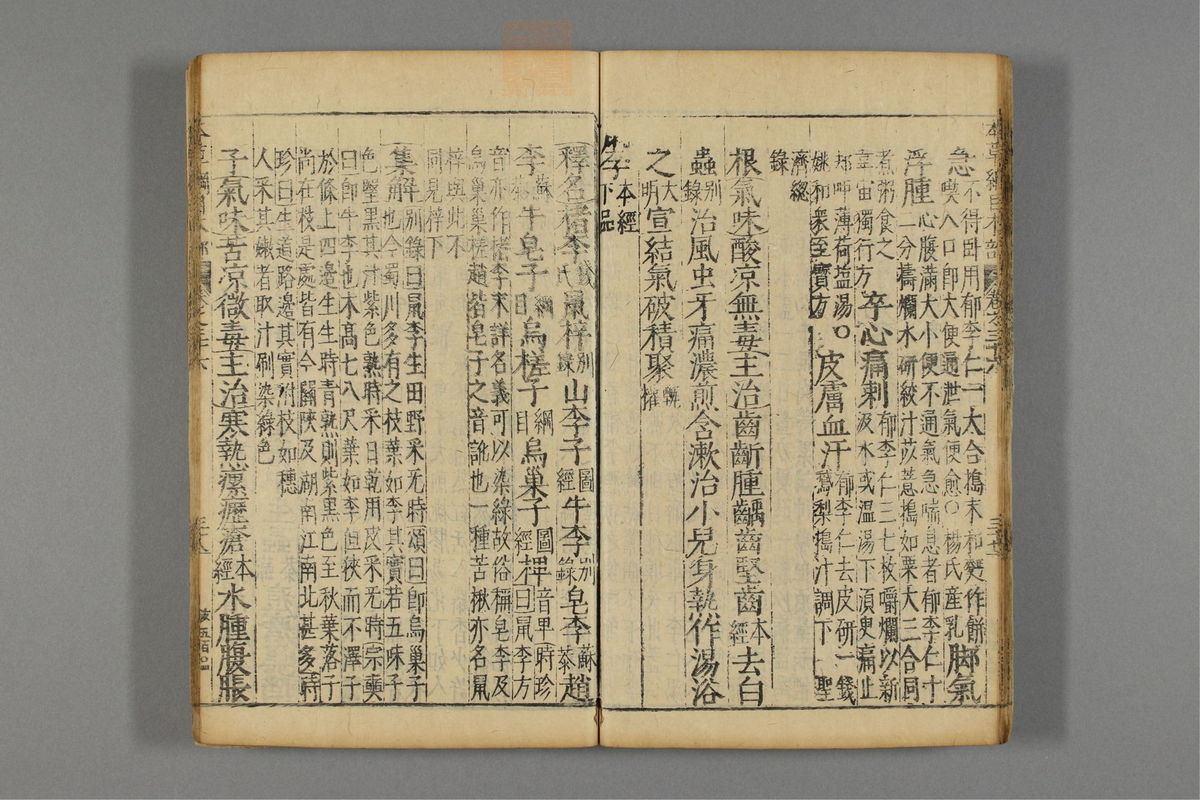 急不得卧用郁李仁一大合搗末和麪作餅
喫入口即大便通泄氣便愈○楊氏産乳脚氣
浮腫心腹滿大小便不通氣急喘息者郁李仁十
二分搗爛水研絞汁苡薏搗如粟大三合同
煮粥食之
韋宙獨行方卒心痛刺郁李仁三七枚嚼爛以新
汲水或溫湯下須臾痛止
却呷薄荷塩湯○
姚和衆至寶方皮膚血汗郁李仁去皮研一錢
鵞梨搗汁調下聖
濟總
錄
根氣味酸凉無毒主治齒齗腫齲齒堅齒本經去白
蟲別錄治風虫牙痛濃煎含漱治小兒身熱作湯浴
之大明宣結氣破積聚甄權
鼠李本經下品
釋名楮李錢氏鼠梓別錄山李子圖經牛李別錄皂李蘇恭趙
李蘇恭牛皂子綱目烏槎子綱目烏巢子圖經椑音卑時珍
曰鼠李方
音亦作楮李未詳名義可以染綠故俗稱皂李及
烏巢巢槎趙皆皂子之音訛也一種苦楸亦名鼠
梓與此不
同見梓下
集解別錄曰鼠李生田野采无時頌曰即烏巢子
也今蜀川多有之枝葉如李其實若五味子
色瑿黑其汁紫色熟時采日乾用皮采无時宗奭
曰即牛李也木高七八尺葉如李但狹而不澤子
於條上四邊生生時青熟則紫黑色至秋葉落子
尚在枝是處皆有今關陝及湖南江南北甚多時
珍曰生道路邊其實附枝如穗
人采其嫩者取汁刷染綠色
子氣味苦凉微毒主治寒熱瘰癧瘡本經水腫腹脹